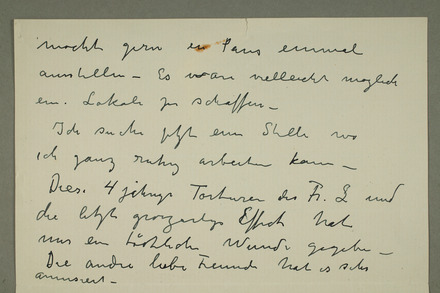 mocht gern in Paris einmal
ausstellen – Es wäre vielleicht möglich
ein. Lokale zu schaffen –
Ich suche jetzt eine Stelle wo
ich ganz ruhig arbeiten kann –
Diese 4 jährige Torturen des Fr. L und
die letzte grossartige Effekt hat
mir ein tödtliche Wunde gegeben –
Die andre liebe Freunde hat es sehr
amusiert –